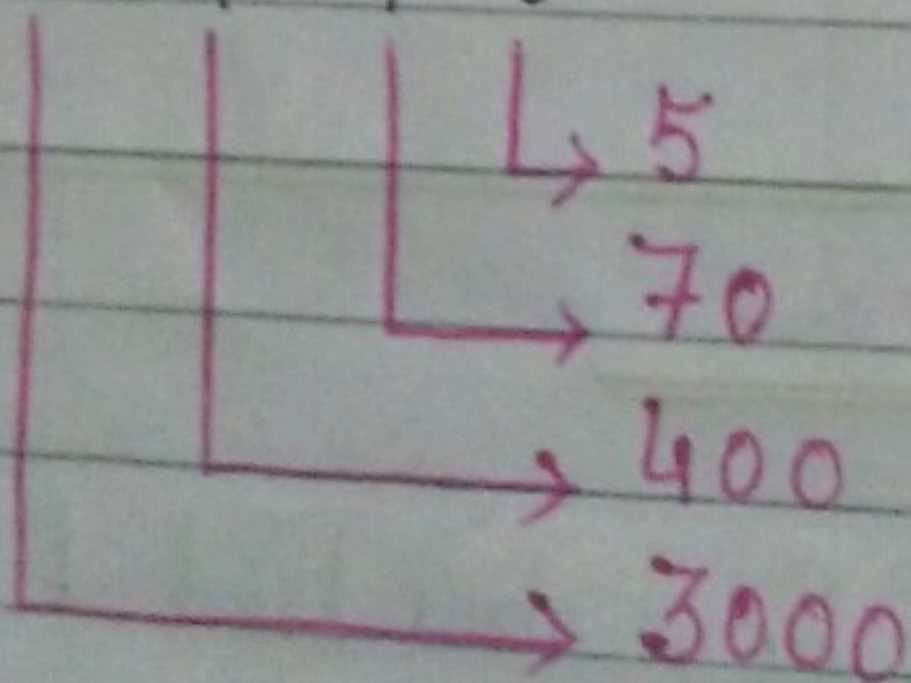 5
70
400
3000